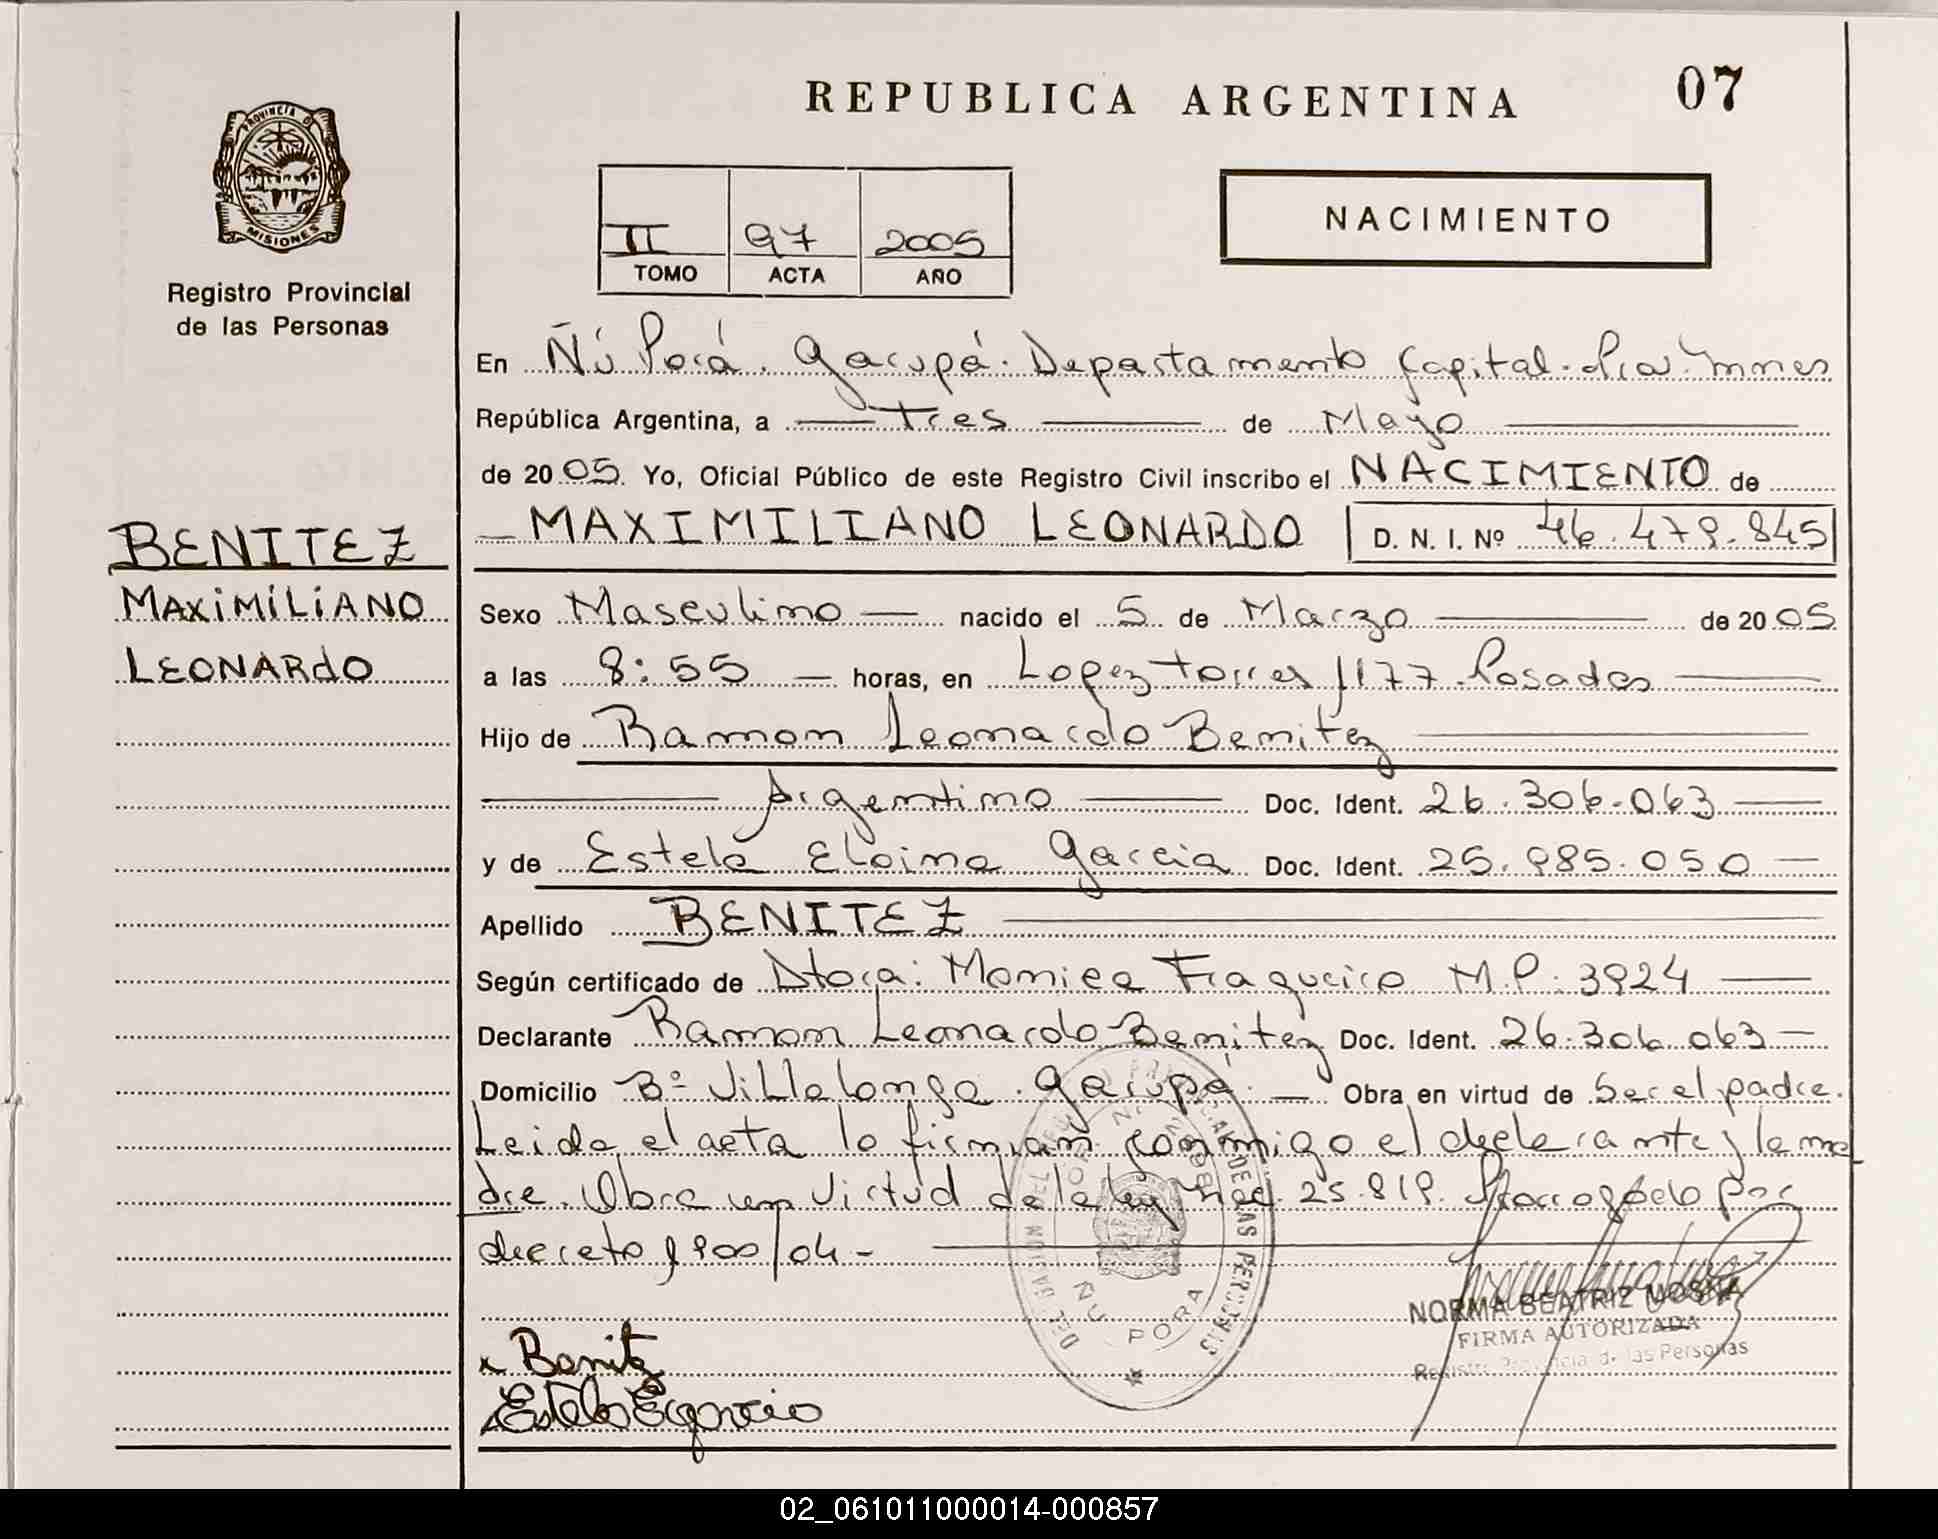 REPUBLICA ARGENTINA
07
PROVINCIA D
MISIONES
Registro Provincial
de las Personas
NACIMIENTO
II 97 2005
TOMO ACTA AÑO
En Ñú Porá. Garupá. Departamento Capital. Pcia. Mnes
República Argentina, a tres de Mayo
de 2005. Yo, Oficial Público de este Registro Civil inscribo el NACIMIENTO de
MAXIMILIANO LEONARDO D. N. I. Nº 46.479.845
BENITEZ
MAXIMILIANO
LEONARDO
Sexo Masculino nacido el 5 de Marzo de 2005
a las 8:55 horas, en Lopez torres 1177. Posadas
Hijo de Ramon Leonardo Benitez
Argentino Doc. Ident. 26.306.063
y de Estela Eloina Garcia Doc. Ident. 25.985.050
Apellido BENITEZ
Según certificado de Dtora: Monica Fraqueiro M.P. 3924
Declarante Ramon Leonardo Benitez Doc. Ident. 26.306.063
Domicilio Bº Villalonga. Garupá. Obra en virtud de Ser el padre.
Leida el acta lo firman conmigo el declarante y la ma
dre. Obra en Virtud de la ley 25.819. Prorrogado por
decreto 1900/04-
ÑU PORA
NORMA BEATRIZ
FIRMA AUTORIZADA
Registro Provincial de las Personas
x Benitz
Estela E garcia
02_061011000014-000857